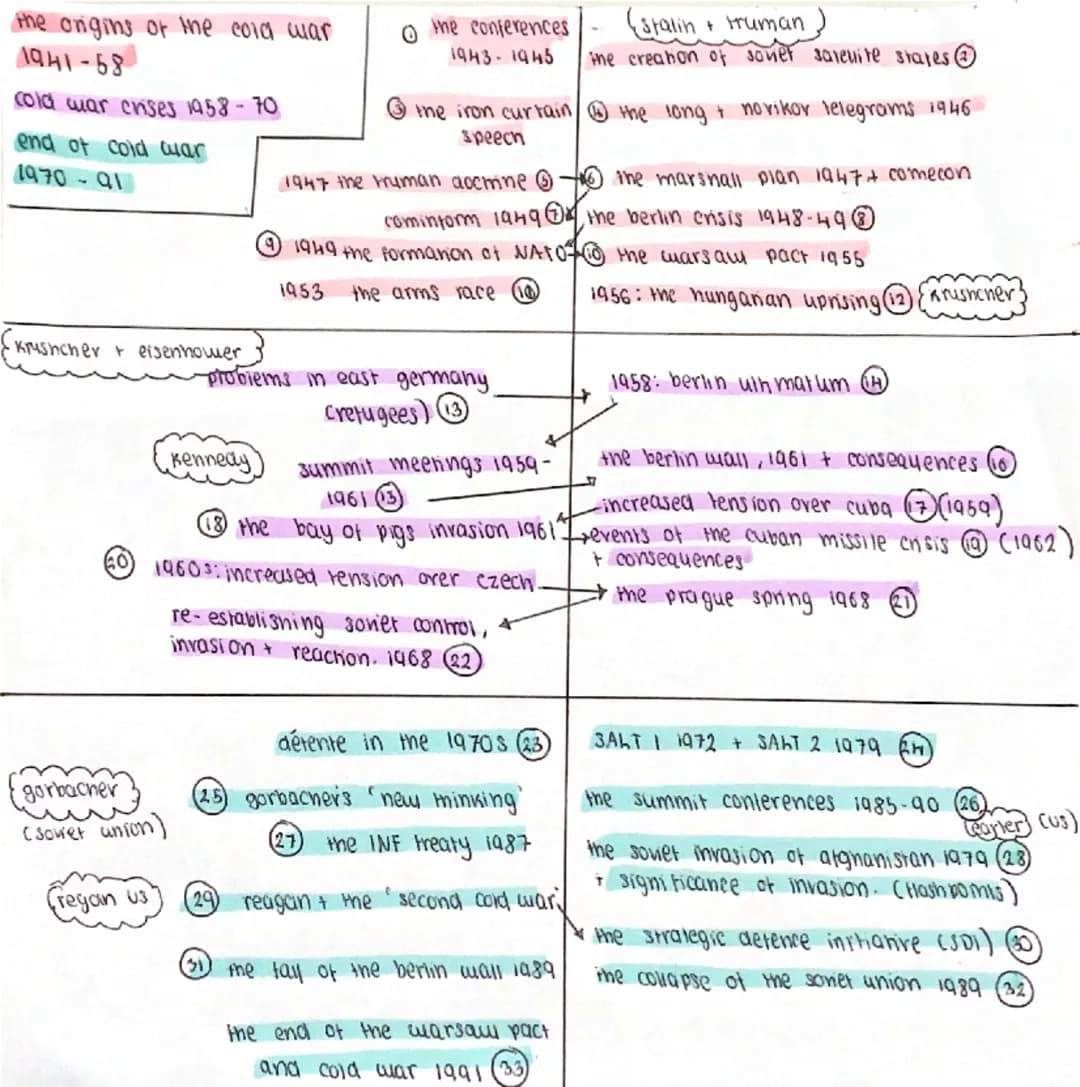 the origins of the cold war
1941-58
cold war crises 1958-70
end of cold war
1970-91
① the conferences
1943-1945
- (stalin + truman)
the creation of soviet satellite states ②
③ the iron curtain
speech
④ the long + novikov telegrams 1946
1947 the truman doctrine ⑤
⑥ the marshall plan 1947 + comecon
cominform 1949 ⑦
the berlin crisis 1948-49 ⑧
⑨ 1949 the formation of NATO
⑩ the warsaw pact 1955
1953 the arms race ⑩
1956: the hungarian uprising ⑫ krushchev
krushchev + eisenhower
problems in east germany
(refugees) ⑬
1958: berlin ultimatum ⑭
kennedy
summit meetings 1959-
1961 ⑬
the berlin wall, 1961 + consequences ⑯
increased tension over cuba ⑰ (1959)
⑱ the bay of pigs invasion 1961
events of the cuban missile crisis ⑲ (1962)
+ consequences
⑳ 1960s: increased tension over czech
the prague spring 1968 ㉑
re-establishing soviet control,
invasion + reaction. 1968 ㉒
détente in the 1970s ㉓
SALT 1 1972 + SALT 2 1979 ㉔
gorbachev
(soviet union)
㉕ gorbachev's 'new thinking'
the summit conferences 1985-90 ㉖
(carter) (US)
㉗ the INF treaty 1987
the soviet invasion of afghanistan 1979 ㉘
+ significance of invasion. (flashpoints)
regan US
㉙ reagan + the 'second cold war'
the strategic defence initiative (SDI) ㉚
㉛ the fall of the berlin wall 1989
the collapse of the soviet union 1989 ㉜
the end of the warsaw pact
and cold war 1991 ㉝